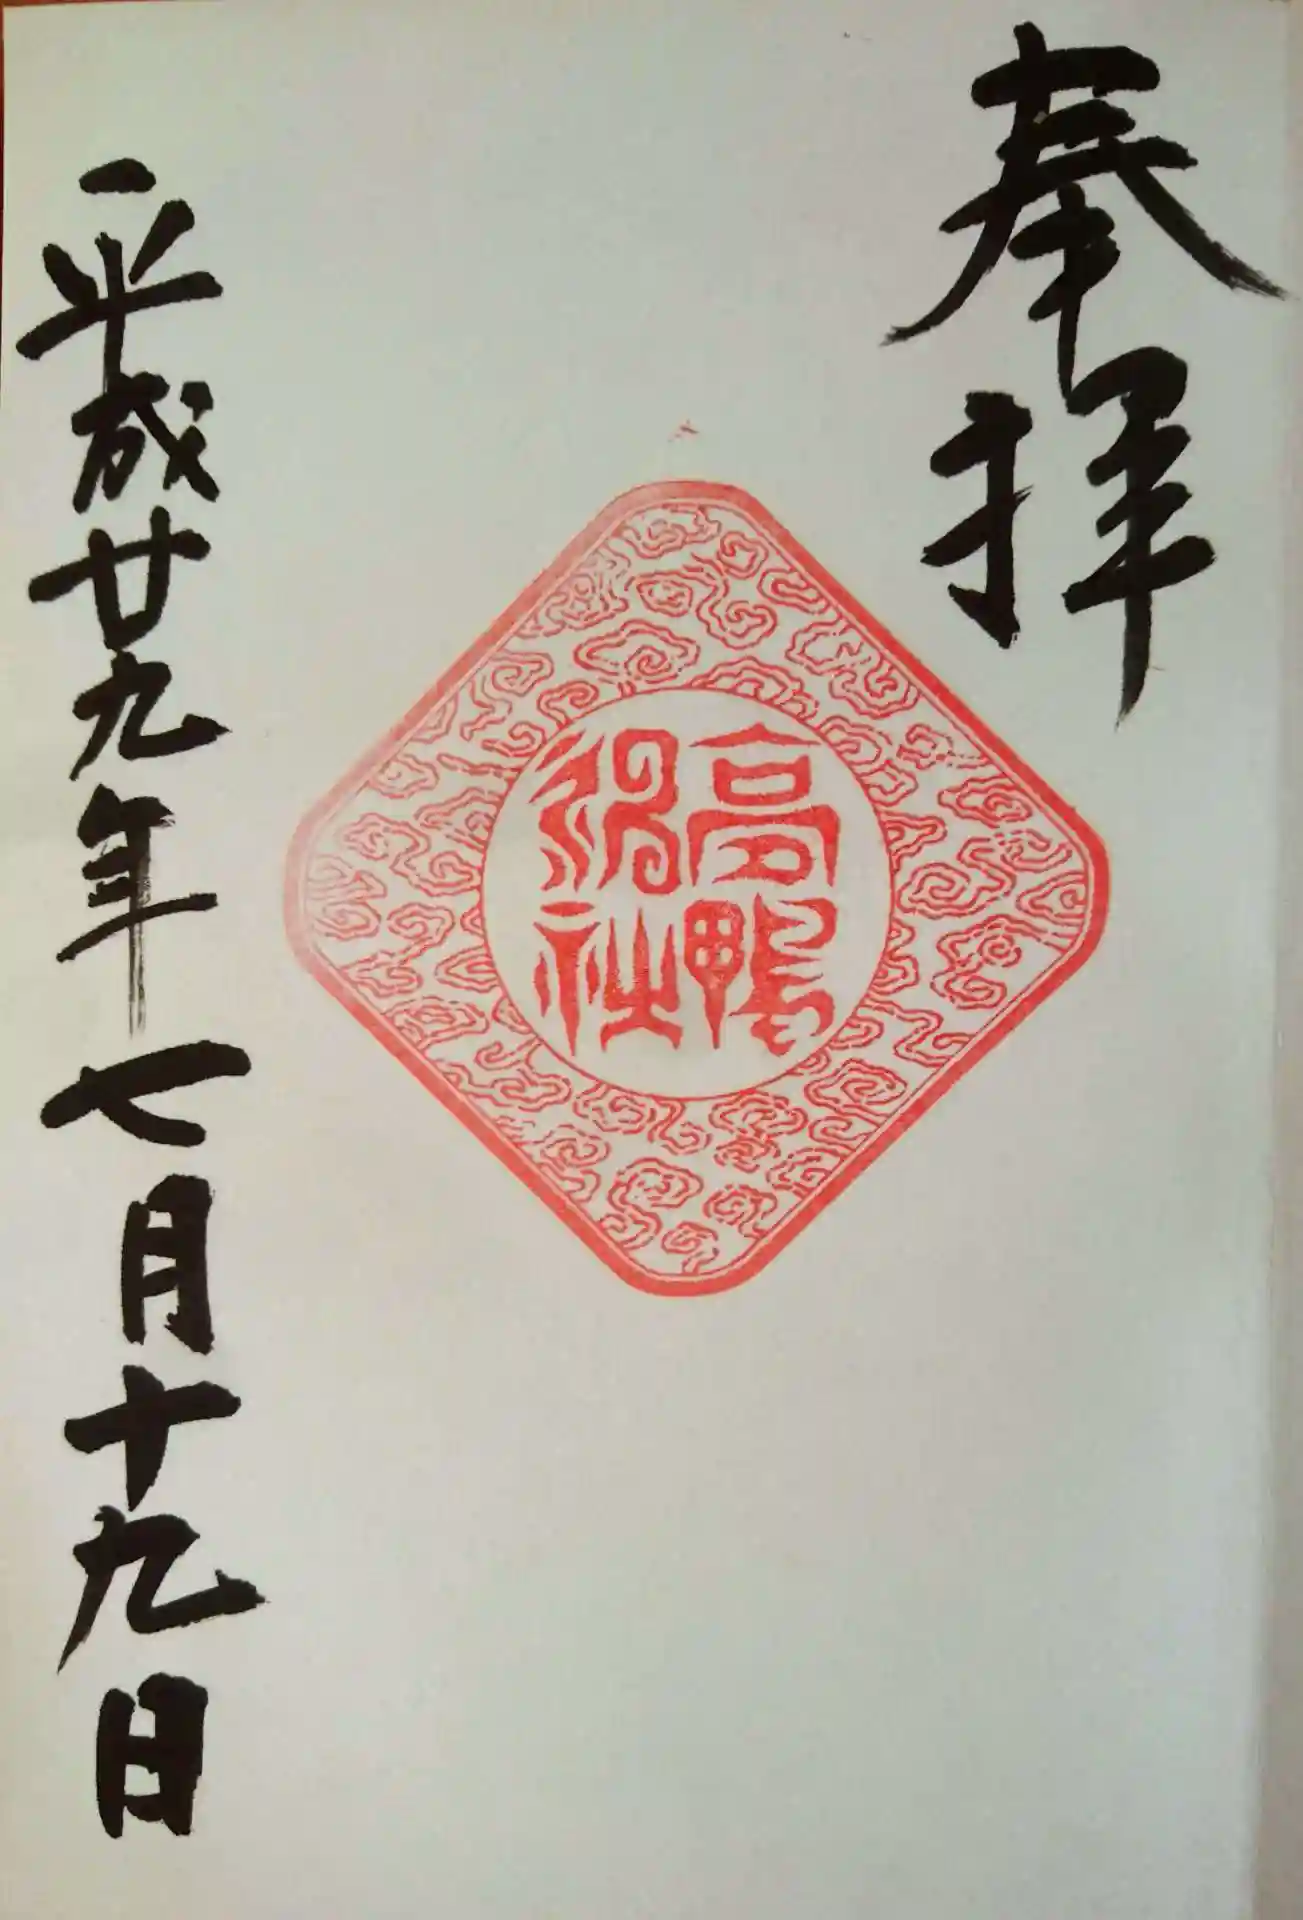 奉拝
高鴨
神社
平成廿九年七月十九日